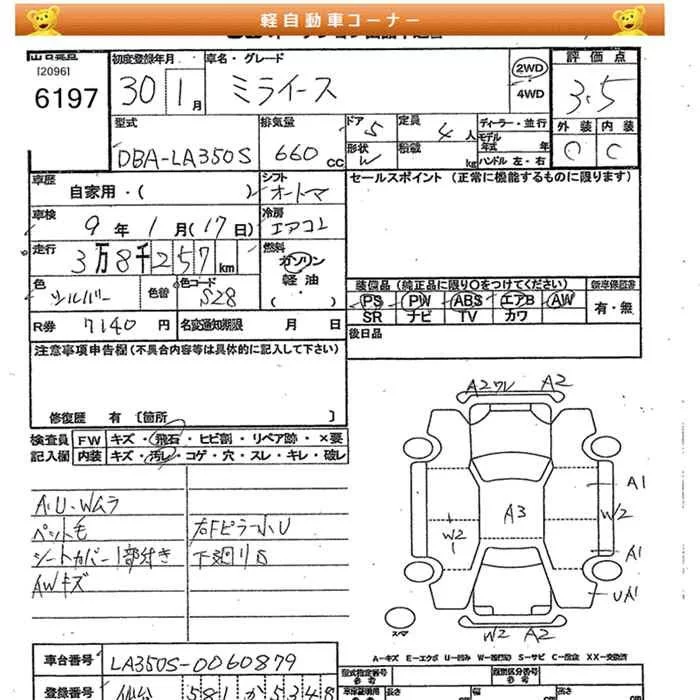 軽自動車コーナー
[2096]
6197
初度登録年月 車名・グレード 2WD 評価点
30 1月 ミライース 4WD 3.5
型式 排気量 ドア 5 定員 4人 ディーラー・並行 外装 内装
DBA-LA350S 660cc 形状 W 積載 kg モデル年式 年 C C
ハンドル 左・右
車歴 自家用・( ) シフト オートマ セールスポイント (正常に機能するものに限ります)
車検 9年1月(17日) 冷房 エアコン
走行 3万8千257km 燃料 ガソリン
軽油
・( )
色 シルバー 色替 色コード S28
装備品 (純正品に限り○をつけてください) 新車保証書
PS PW ABS エアB AW 有・無
SR ナビ TV カワ
R券 7140円 名変通知期限 月 日 後日品
注意事項申告欄(不具合内容等は具体的に記入して下さい)
修復歴 有 [箇所 ]
検査員 FW キズ・飛石・ヒビ割・リペア跡・×要
記入欄 内装 キズ・汚レ・コゲ・穴・スレ・キレ・破レ
A.U.Wムラ
ペット毛 右Fピラー小U
シートカバー1部付き 下廻りS
AWキズ
A2ワレ A2
A1
W2
A3
W2
A1
UA1
スマ
W2 A2
A-キズ E-エクボ U-凹み S-サビ C-腐蝕 XX-交換済
車台番号 LA350S-0060879 型式指定番号 類別区分番号
登録番号 仙台 581 か 5348 長さ 幅 高さ